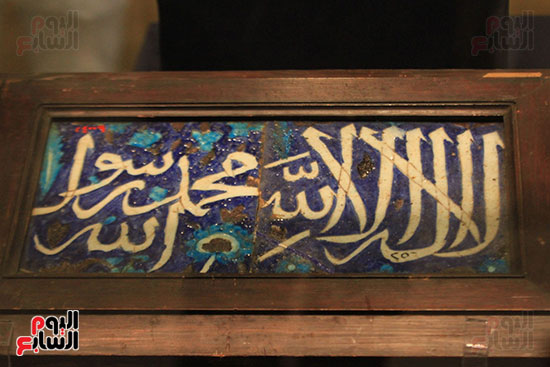 اليوم السابع
اليوم السابع
لا إله إلا الله
محمد رسول
الله
٢٥٠
اليوم السابع
اليوم السابع